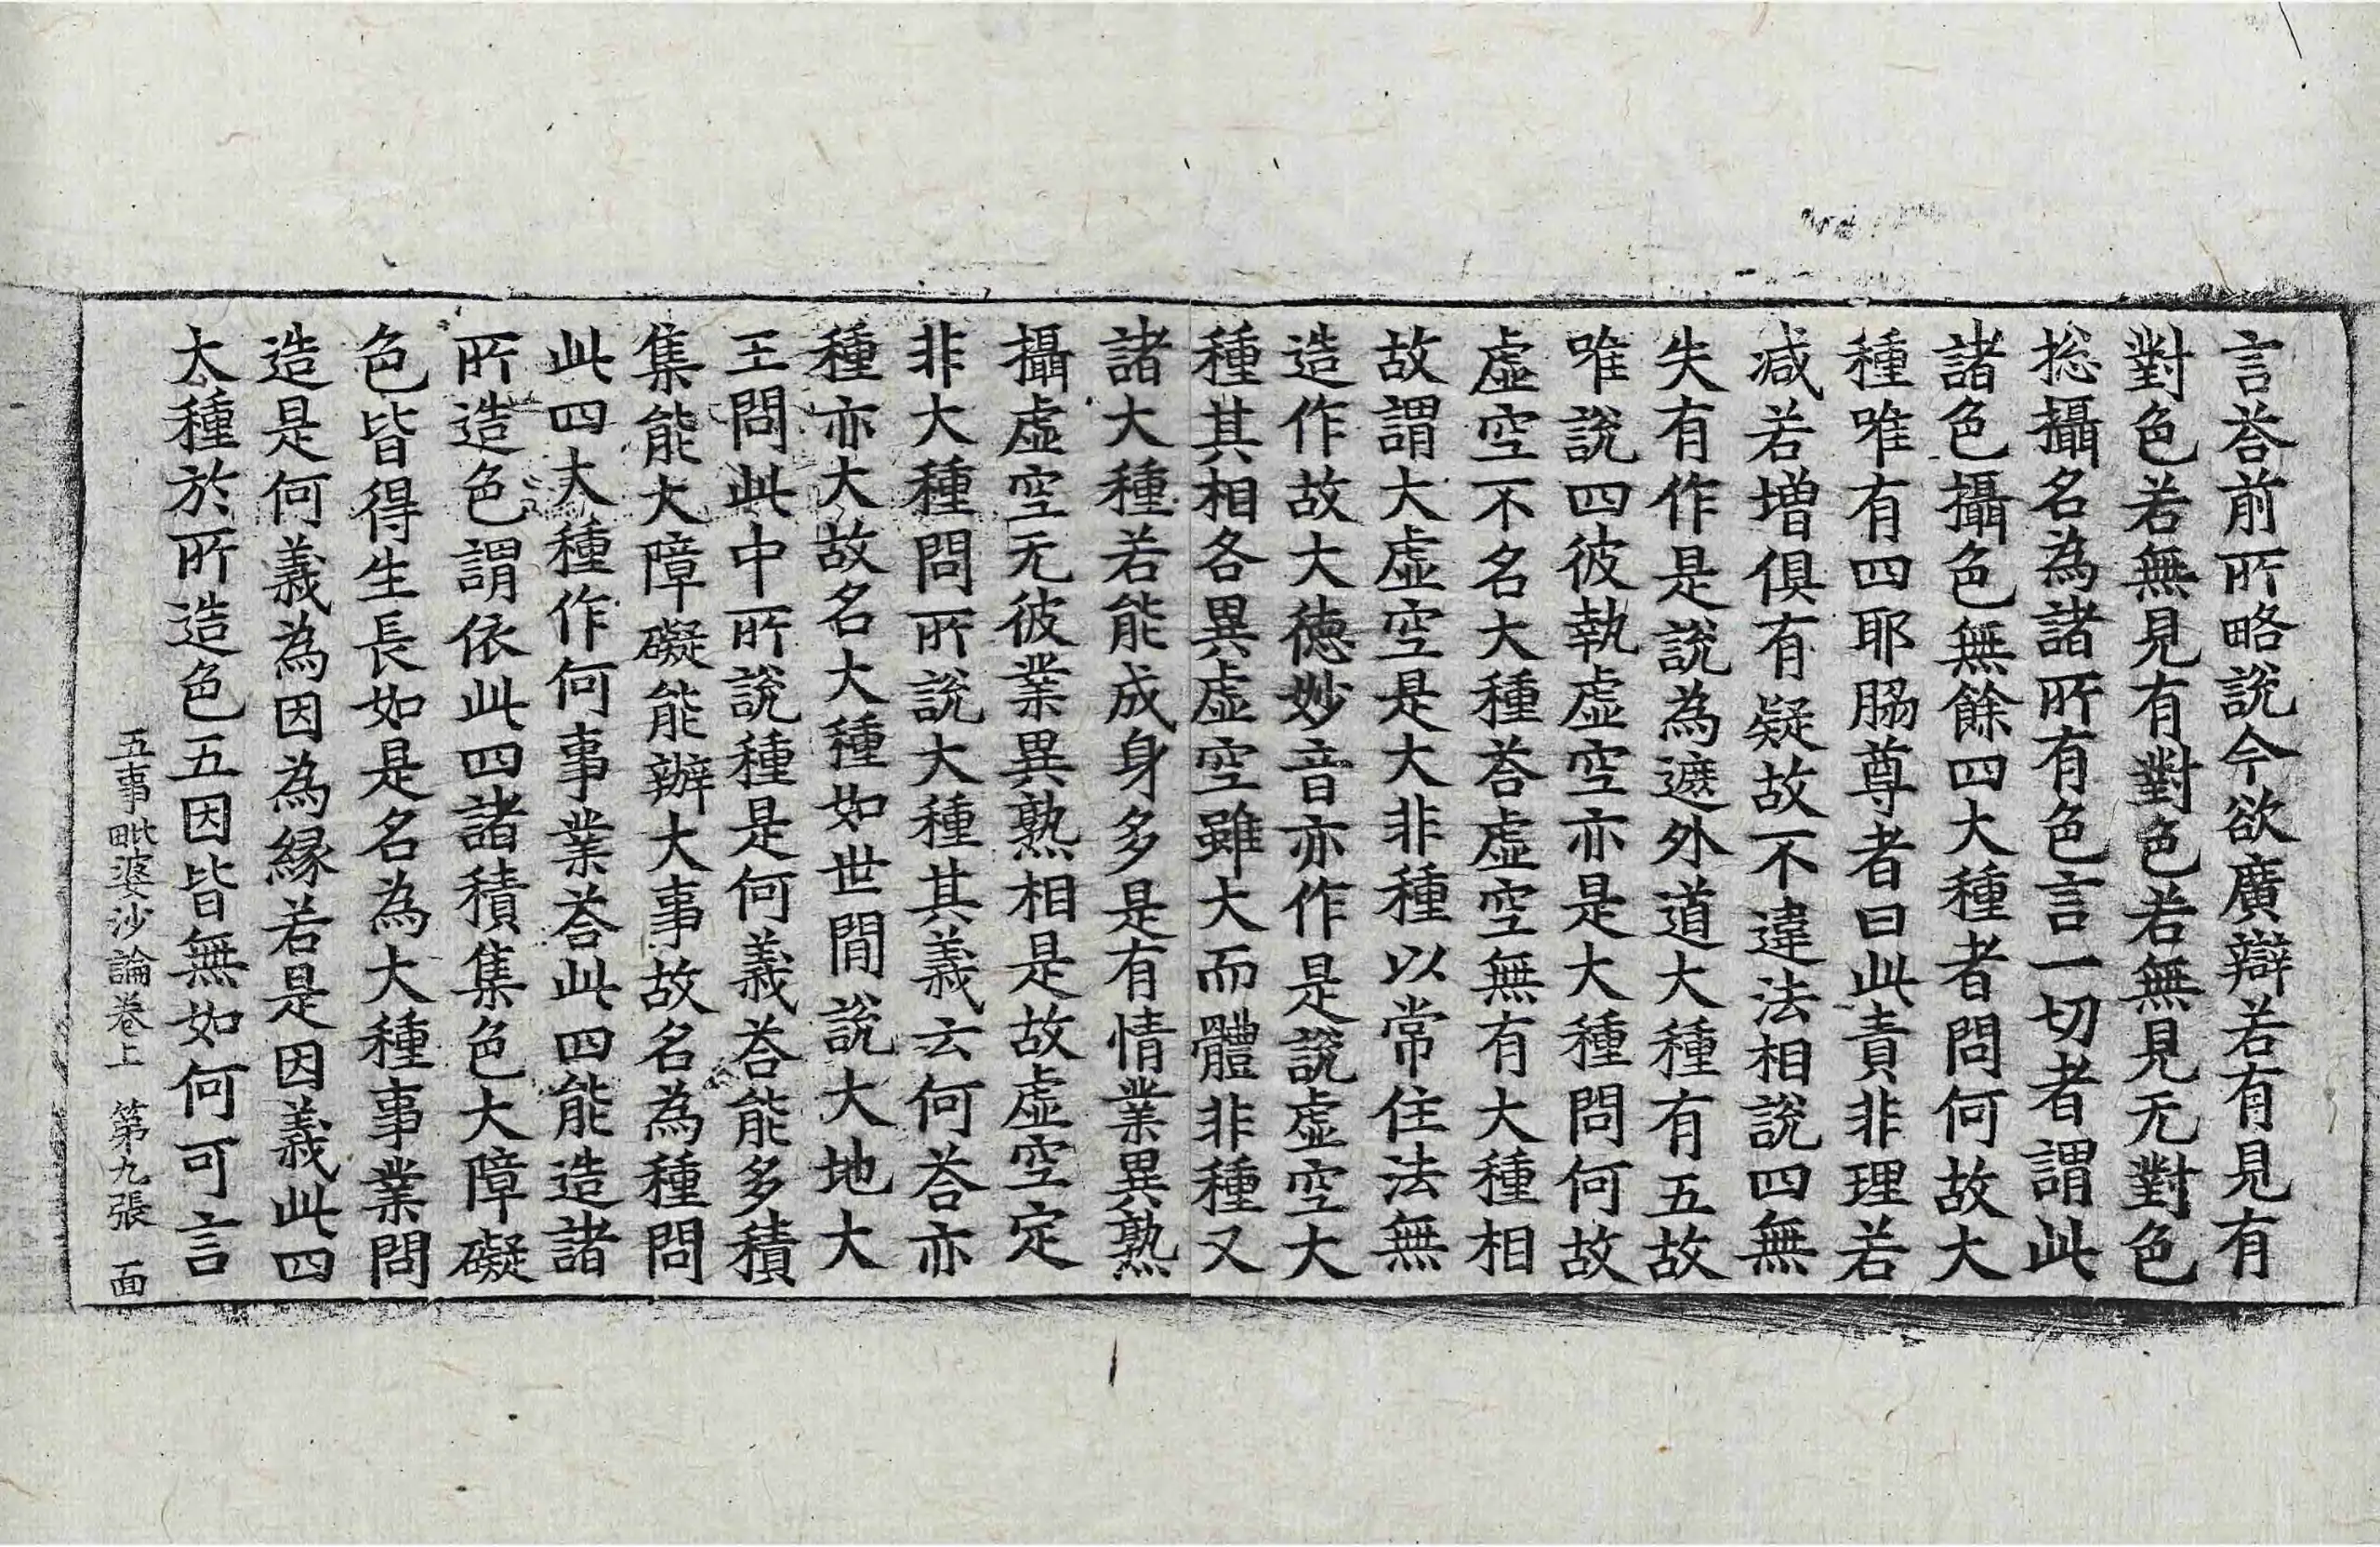 言荅前所略說今欲廣辯若有見有
對色若無見有對色若無見无對色
捴攝名為諸所有色言一切者謂此
諸色攝色無餘四大種者問何故大
種唯有四耶脇尊者曰此責非理若
减若增俱有疑故不違法相說四無
失有作是說為遮外道大種有五故
唯說四彼執虛空亦是大種問何故
虛空不名大種荅虛空無有大種相
故謂大虛空是大非種以常住法無
造作故大德妙音亦作是說虛空大
種其相各異虛空雖大而體非種又
諸大種若能成身多是有情業異熟
攝虛空无彼業異熟相是故虛空定
非大種問所說大種其義云何荅亦
種亦大故名大種如世間說大地大
王問此中所說種是何義荅能多積
集能大障礙能辦大事故名為種問
此四大種作何事業荅此四能造諸
所造色謂依此四諸積集色大障礙
色皆得生長如是名為大種事業問
造是何義為因為緣若是因義此四
大種於所造色五因皆無如何可言
五事毗婆沙論卷上 第九張 面